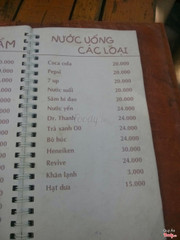 NƯỚC UỐNG
CÁC LOẠI
Coca cola 20.000
Pepsi 20.000
7 up 20.000
Nước suối 20.000
Sâm bí đao 20.000
Nước yến 24.000
Dr. Thanh 24.000
Trà xanh O0 24.000
Bò húc 24.000
Heneiken 30.000
Revive 24.000
Khăn lạnh 3.000
Hạt dưa 15.000
ẤM